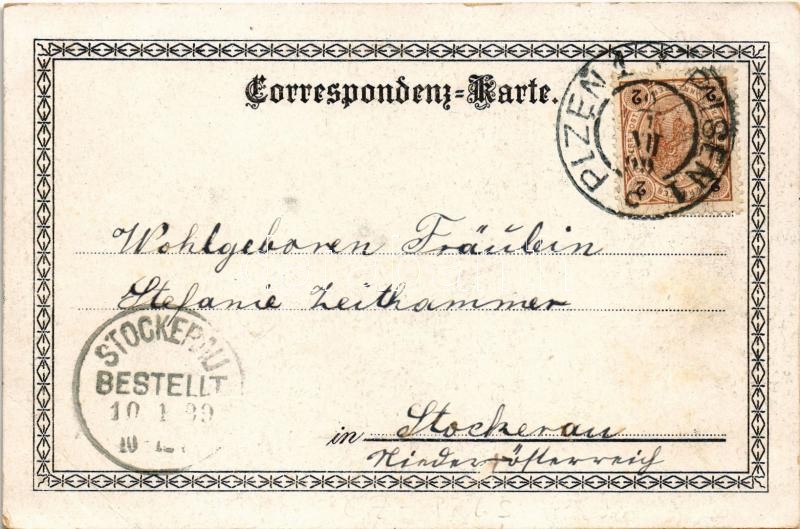 Correspondenz-Karte.
PLZEN 1 PILSEN 1
2 2
2 2
VII
Wohlgeboren Fräulein
Stefanie Zeithammer
STOCKERAU
BESTELLT
10 1 99
10
in Stockerau
Nieder-österreich